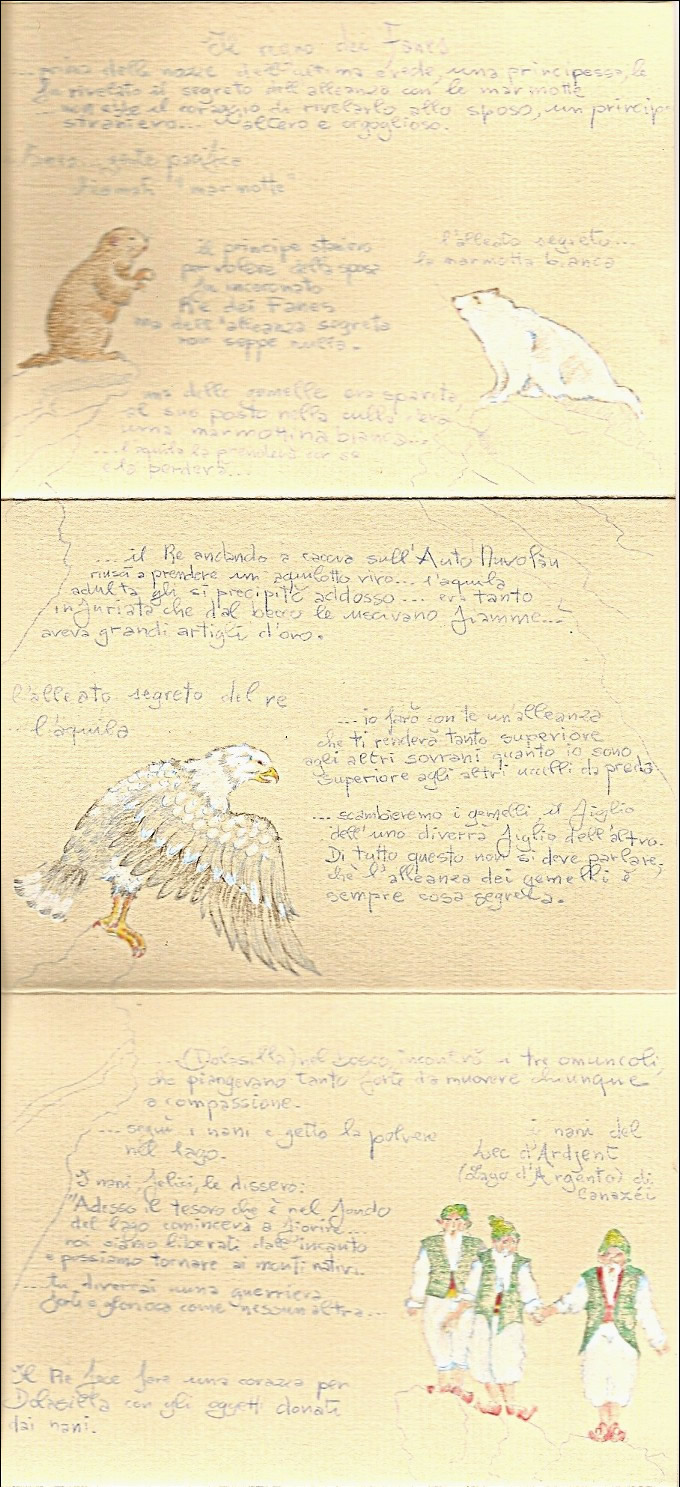 Il regno dei Fanes
...prima delle nozze dell'ultima erede, una principessa, le
fu rivelato il segreto dell'alleanza con le marmotte
...non ebbe il coraggio di rivelarlo allo sposo, un principe
straniero... altero e orgoglioso.
Fanes... gente pacifica
chiamati "marmotte"
il principe straniero
per volere della sposa
fu incoronato
Re dei Fanes
ma dell'alleanza segreta
non seppe nulla.
l'alleato segreto...
la marmotta bianca
una delle gemelle era sparita,
al suo posto nella culla c'era
una marmottina bianca...
...l'aquila la prenderà con se
e la perderà...
...il Re andando a caccia sull'Auto Nuvolàu
riuscì a prendere un aquilotto vivo... l'aquila
adulta gli si precipitò addosso... era tanto
infuriata che dal becco le uscivano fiamme...
aveva grandi artigli d'oro.
l'alleato segreto del re
...l'aquila
...io farò con te un'alleanza
che ti renderà tanto superiore
agli altri sovrani quanto io sono
superiore agli altri uccelli da preda
...scambieremo i gemelli, il figlio
dell'uno diverrà figlio dell'altro.
Di tutto questo non si deve parlare,
chè l'alleanza dei gemelli è
sempre cosa segreta.
...(Dolasilla) nel bosco, incontrò tre omuncoli,
che piangevano tanto forte da muovere chiunque
a compassione.
...seguì i nani e gettò la polvere
nel lago.
i nani del
Lec d'Ardjent
(Lago d'Argento) di
Canazéi
I nani, felici, le dissero:
"Adesso il tesoro che è nel fondo
del lago comincerà a fiorire...
noi siamo liberati dall'incanto
e possiamo tornare ai monti nativi.
...tu diverrai una guerriera
forte e gloriosa come nessun'altra...
Il Re fece fare una corazza per
Dolasilla con gli oggetti donati
dai nani.